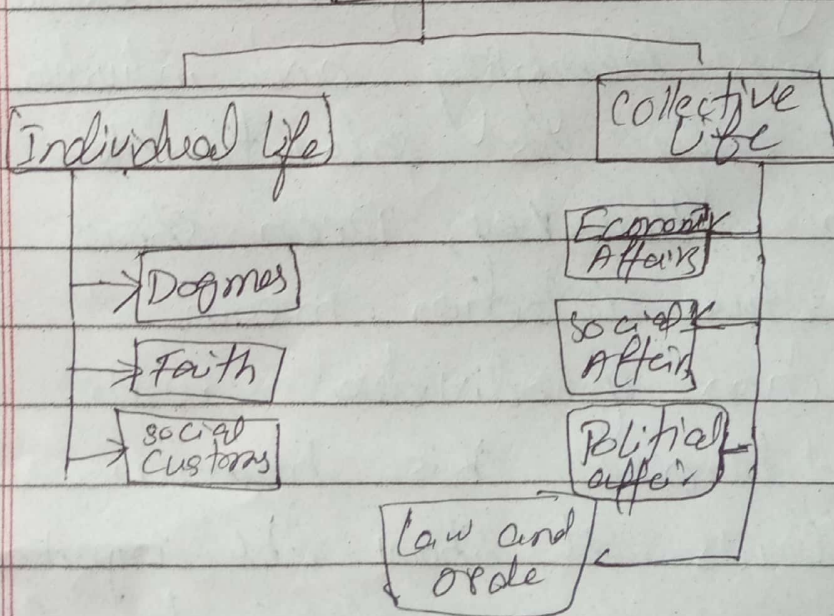 Individual Life
Collective
Life
Dogmas
Faith
Social
Customs
Economic
Affairs
Social
Affairs
Political
affair
Law and
orde